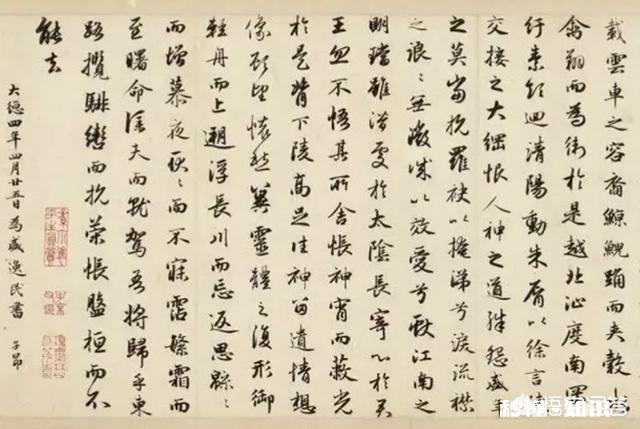 載雲車之容裔鯨鯢踊而夾轂
禽翔而為衛於是越北沚度南
紆素領迴清陽動朱脣以徐言
交接之大綱恨人神之道殊怨盛
之莫當抗羅袂以掩涕兮淚流襟
之浪〻無微誠以效愛兮獻江南之
明璫雖潛處於太陰長寄心於君
王忽不悟其所舍悵神宵而蔽光
於是背下陵高足往神留遺情想
像顧望懷愁冀靈體之復形御
輕舟而上遡浮長川而忘返思緜〻
而增慕夜耿〻而不寐霑繁霜而
至曙命僕夫而就駕吾將歸乎東
路攬騑轡而抗策悵盤桓而不
能去
大德四年四月廿五日為盛逸民書 子昂